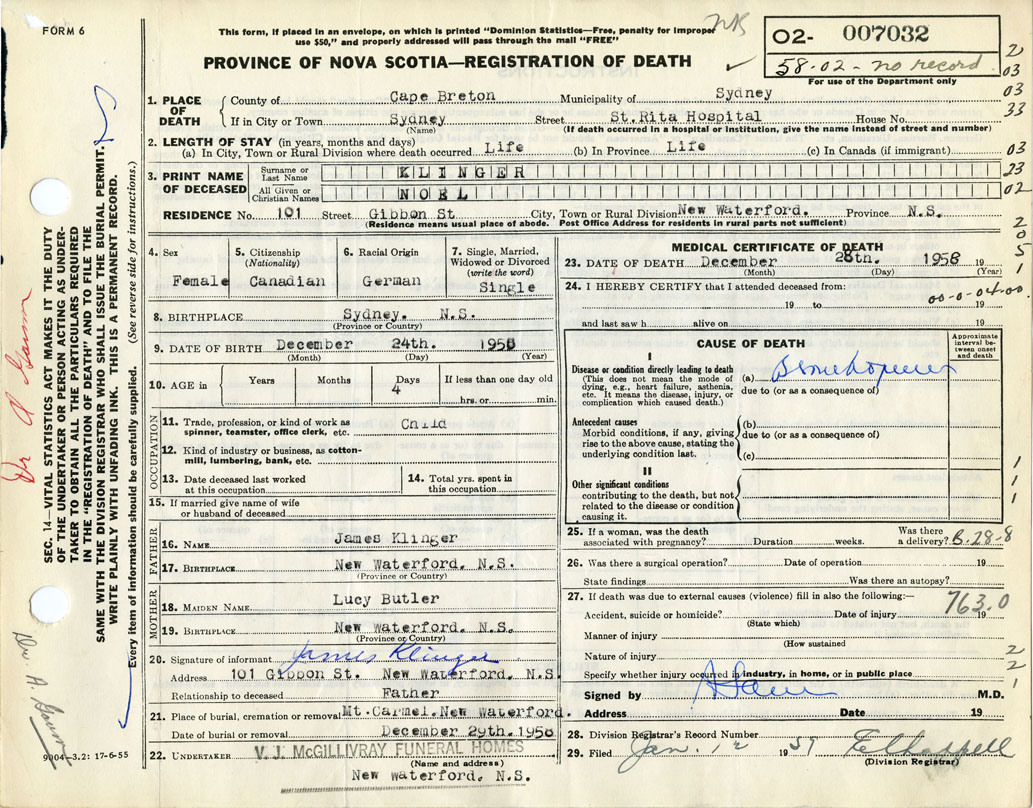 FORM 6
This form, if placed in an envelope, on which is printed "Dominion Statistics—Free, penalty for improper
use $50," and properly addressed will pass through the mail "FREE"
NR
O2- 007032
58-02 - no record
For use of the Department only
PROVINCE OF NOVA SCOTIA—REGISTRATION OF DEATH
1. PLACE OF DEATH
County of Cape Breton Municipality of Sydney
If in City or Town Sydney Street St.Rita Hospital House No.
(Name) (If death occurred in a hospital or institution, give the name instead of street and number)
2. LENGTH OF STAY (in years, months and days)
(a) In City, Town or Rural Division where death occurred Life (b) In Province Life (c) In Canada (if immigrant)
3. PRINT NAME OF DECEASED
Surname or Last Name KLINGER
All Given or Christian Names NOEL
RESIDENCE No. 101 Street Gibbon St City, Town or Rural Division New Waterford. Province N.S.
(Residence means usual place of abode. Post Office Address for residents in rural parts not sufficient)
4. Sex
Female
5. Citizenship
(Nationality)
Canadian
6. Racial Origin
German
7. Single, Married,
Widowed or Divorced
(write the word)
Single
8. BIRTHPLACE Sydney. N.S.
(Province or Country)
9. DATE OF BIRTH December 24th. 1958
(Month) (Day) (Year)
10. AGE in
Years Months Days If less than one day old
4
hrs. or min.
OCCUPATION
11. Trade, profession, or kind of work as
spinner, teamster, office clerk, etc. Child
12. Kind of industry or business, as cotton-
mill, lumbering, bank, etc.
13. Date deceased last worked
at this occupation
14. Total yrs. spent in
this occupation
15. If married give name of wife
or husband of deceased
FATHER
16. NAME James Klinger
17. BIRTHPLACE New Waterford, N.S.
(Province or Country)
MOTHER
18. MAIDEN NAME Lucy Butler
19. BIRTHPLACE New Waterford. N.S.
(Province or Country)
20. Signature of informant James Klinger
Address 101 Gibbon St. New Waterford, N.S.
Relationship to deceased Father
21. Place of burial, cremation or removal Mt.Carmel.New Waterford.
Date of burial or removal December 29th.1958
22. UNDERTAKER V. J. McGILLIVRAY FUNERAL HOMES
(Name and address)
New Waterford. N.S.
MEDICAL CERTIFICATE OF DEATH
23. DATE OF DEATH December 28th. 1958 19
(Month) (Day) (Year)
24. I HEREBY CERTIFY that I attended deceased from:
00-0-04-00
19 to 19
and last saw h alive on 19
CAUSE OF DEATH
Approximate
interval be-
tween onset
and death
I
Disease or condition directly leading to death
(This does not mean the mode of
dying, e.g., heart failure, asthenia,
etc. It means the disease, injury, or
complication which caused death.)
(a)
due to (or as a consequence of)
Antecedent causes
Morbid conditions, if any, giving
rise to the above cause, stating the
underlying condition last.
(b)
due to (or as a consequence of)
(c)
II
Other significant conditions
contributing to the death, but not
related to the disease or condition
causing it.
25. If a woman, was the death
associated with pregnancy? Duration weeks.
Was there
a delivery? B-28-8
26. Was there a surgical operation? Date of operation 19
State findings Was there an autopsy?
27. If death was due to external causes (violence) fill in also the following:—
763.0
Accident, suicide or homicide? Date of injury 19
(State which)
Manner of injury
(How sustained
Nature of injury
Specify whether injury occurred in industry, in home, or in public place
Signed by M.D.
Address Date 19
28. Division Registrar's Record Number
29. Filed Jan. 12 1959
(Division Registrar)
SEC. 14—VITAL STATISTICS ACT MAKES IT THE DUTY
OF THE UNDERTAKER OR PERSON ACTING AS UNDER-
TAKER TO OBTAIN ALL THE PARTICULARS REQUIRED
IN THE "REGISTRATION OF DEATH" AND TO FILE THE
SAME WITH THE DIVISION REGISTRAR WHO SHALL ISSUE THE BURIAL PERMIT.
WRITE PLAINLY WITH UNFADING INK. THIS IS A PERMANENT RECORD.
Every item of information should be carefully supplied. (See reverse side for instructions.)
9004—3.2: 17-6-55
03
33
03
23
02
2
0
5
1
1
1
1
2
2
1